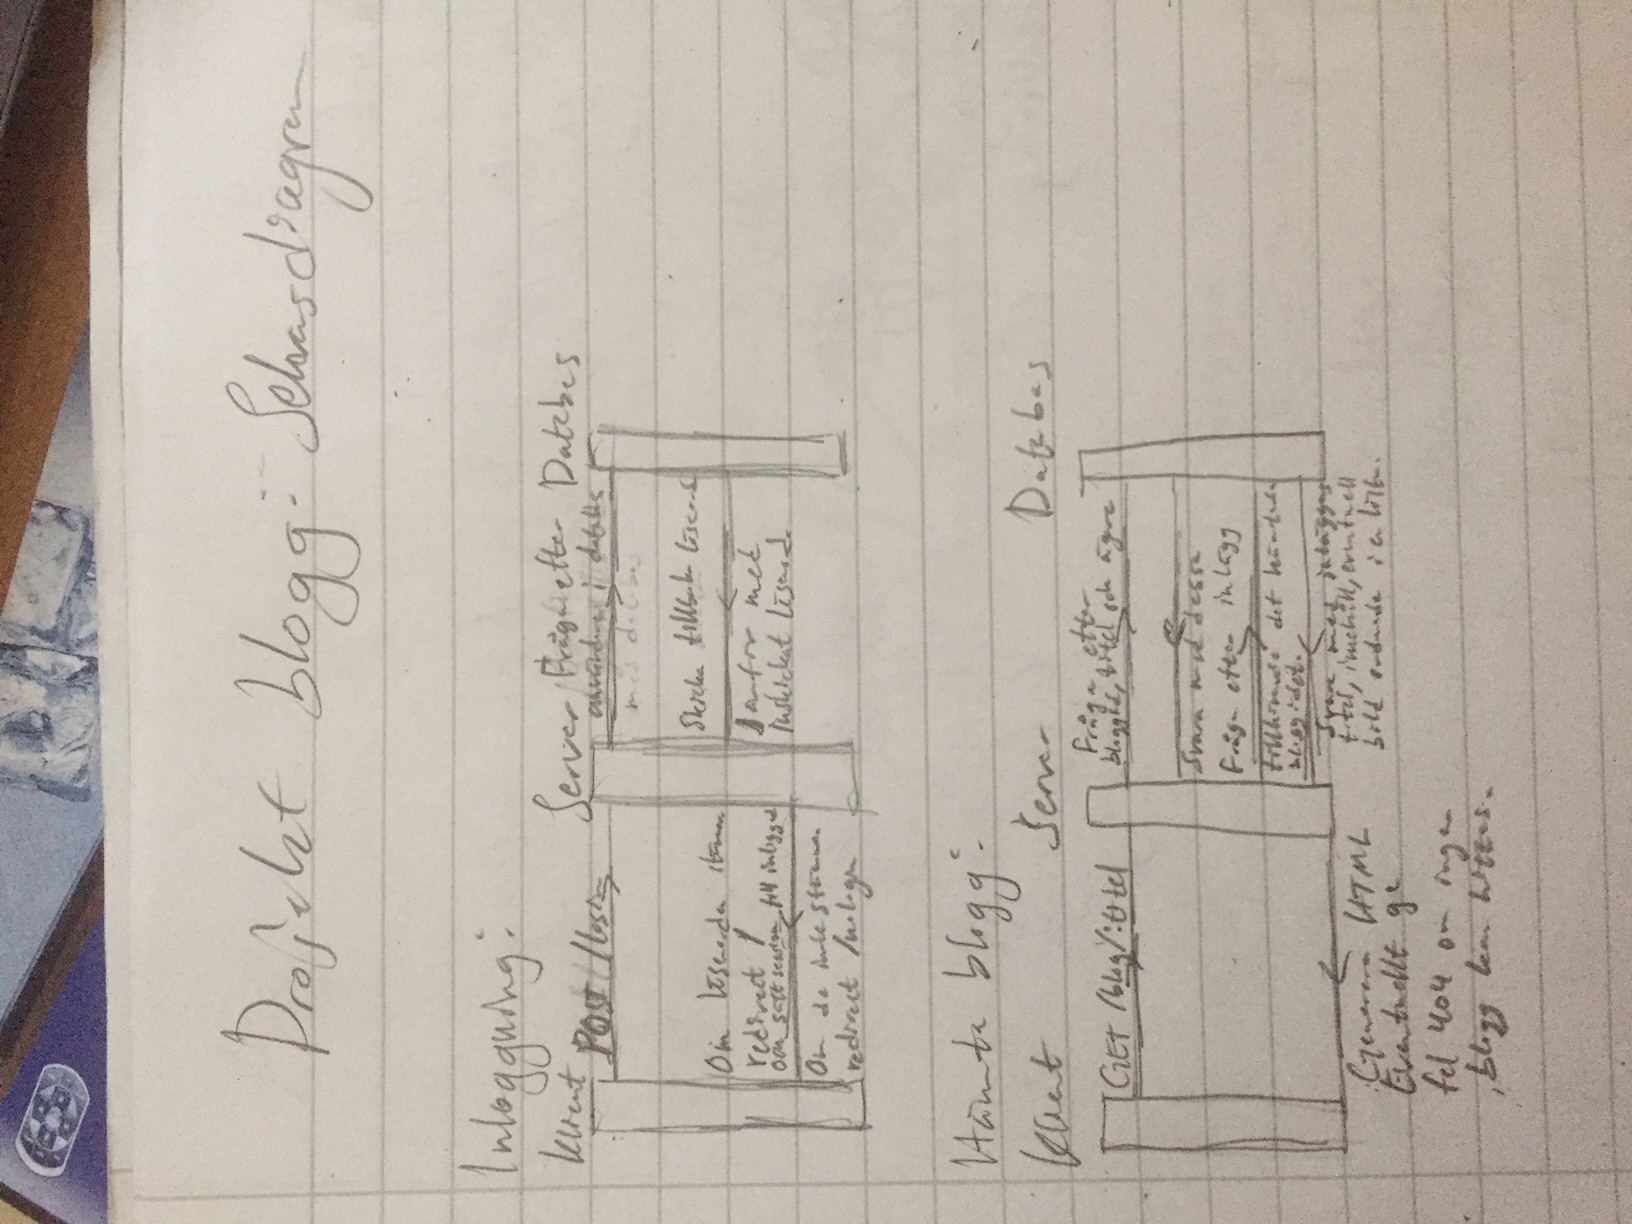 Projekt blogg: Sekvensdiagram
Inloggning:
Klient
Server
Databas
POST /login
Fråga efter
användare i databas
med databas
Skicka tillbaka lösenord
Jämför med
inskickat lösenord.
Om lösenorden stämmer
redirect /
och sätt session till inloggad
Om de inte stämmer
redirect /nologin
Hämta blogg:
Klient
Server
Databas
GET /blog/:titel
Fråga efter
bloggid, titel och ägare
Svara med dessa
Fråga efter inlägg
tillhörande det hämtade
bloggidet.
Svara med inläggens
titel, innehåll, eventuell
bild ordnade i en lista.
Generera HTML
Eventuellt ge
fel 404 om ingen
blogg kan hittas.